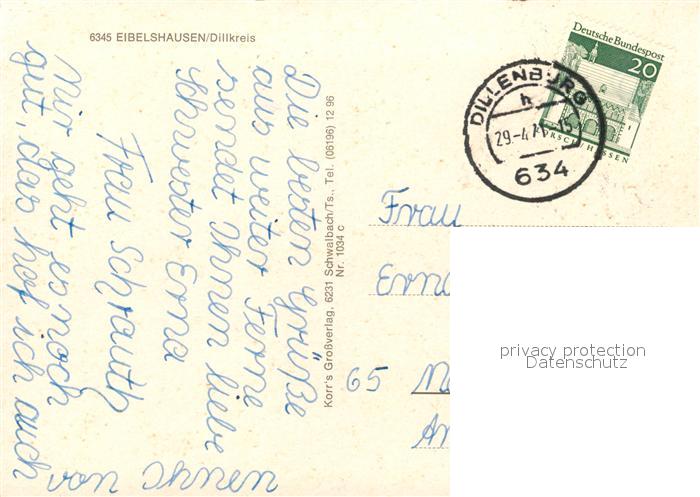 6345 EIBELSHAUSEN/Dillkreis
Die besten Grüße
aus weiter Ferne
sendet Ihnen liebe
Schwester Erna
Frau Schrauth
Mir geht es noch
gut, das hof ich auch
von Ihnen
Korr's Großverlag, 6231 Schwalbach/Ts., Tel. (06196) 12 96
Nr. 1034 c
Deutsche Bundespost
20
LORSCH/HESSEN
DILLENBURG
h
634
Frau
Erna
65
privacy protection
Datenschutz